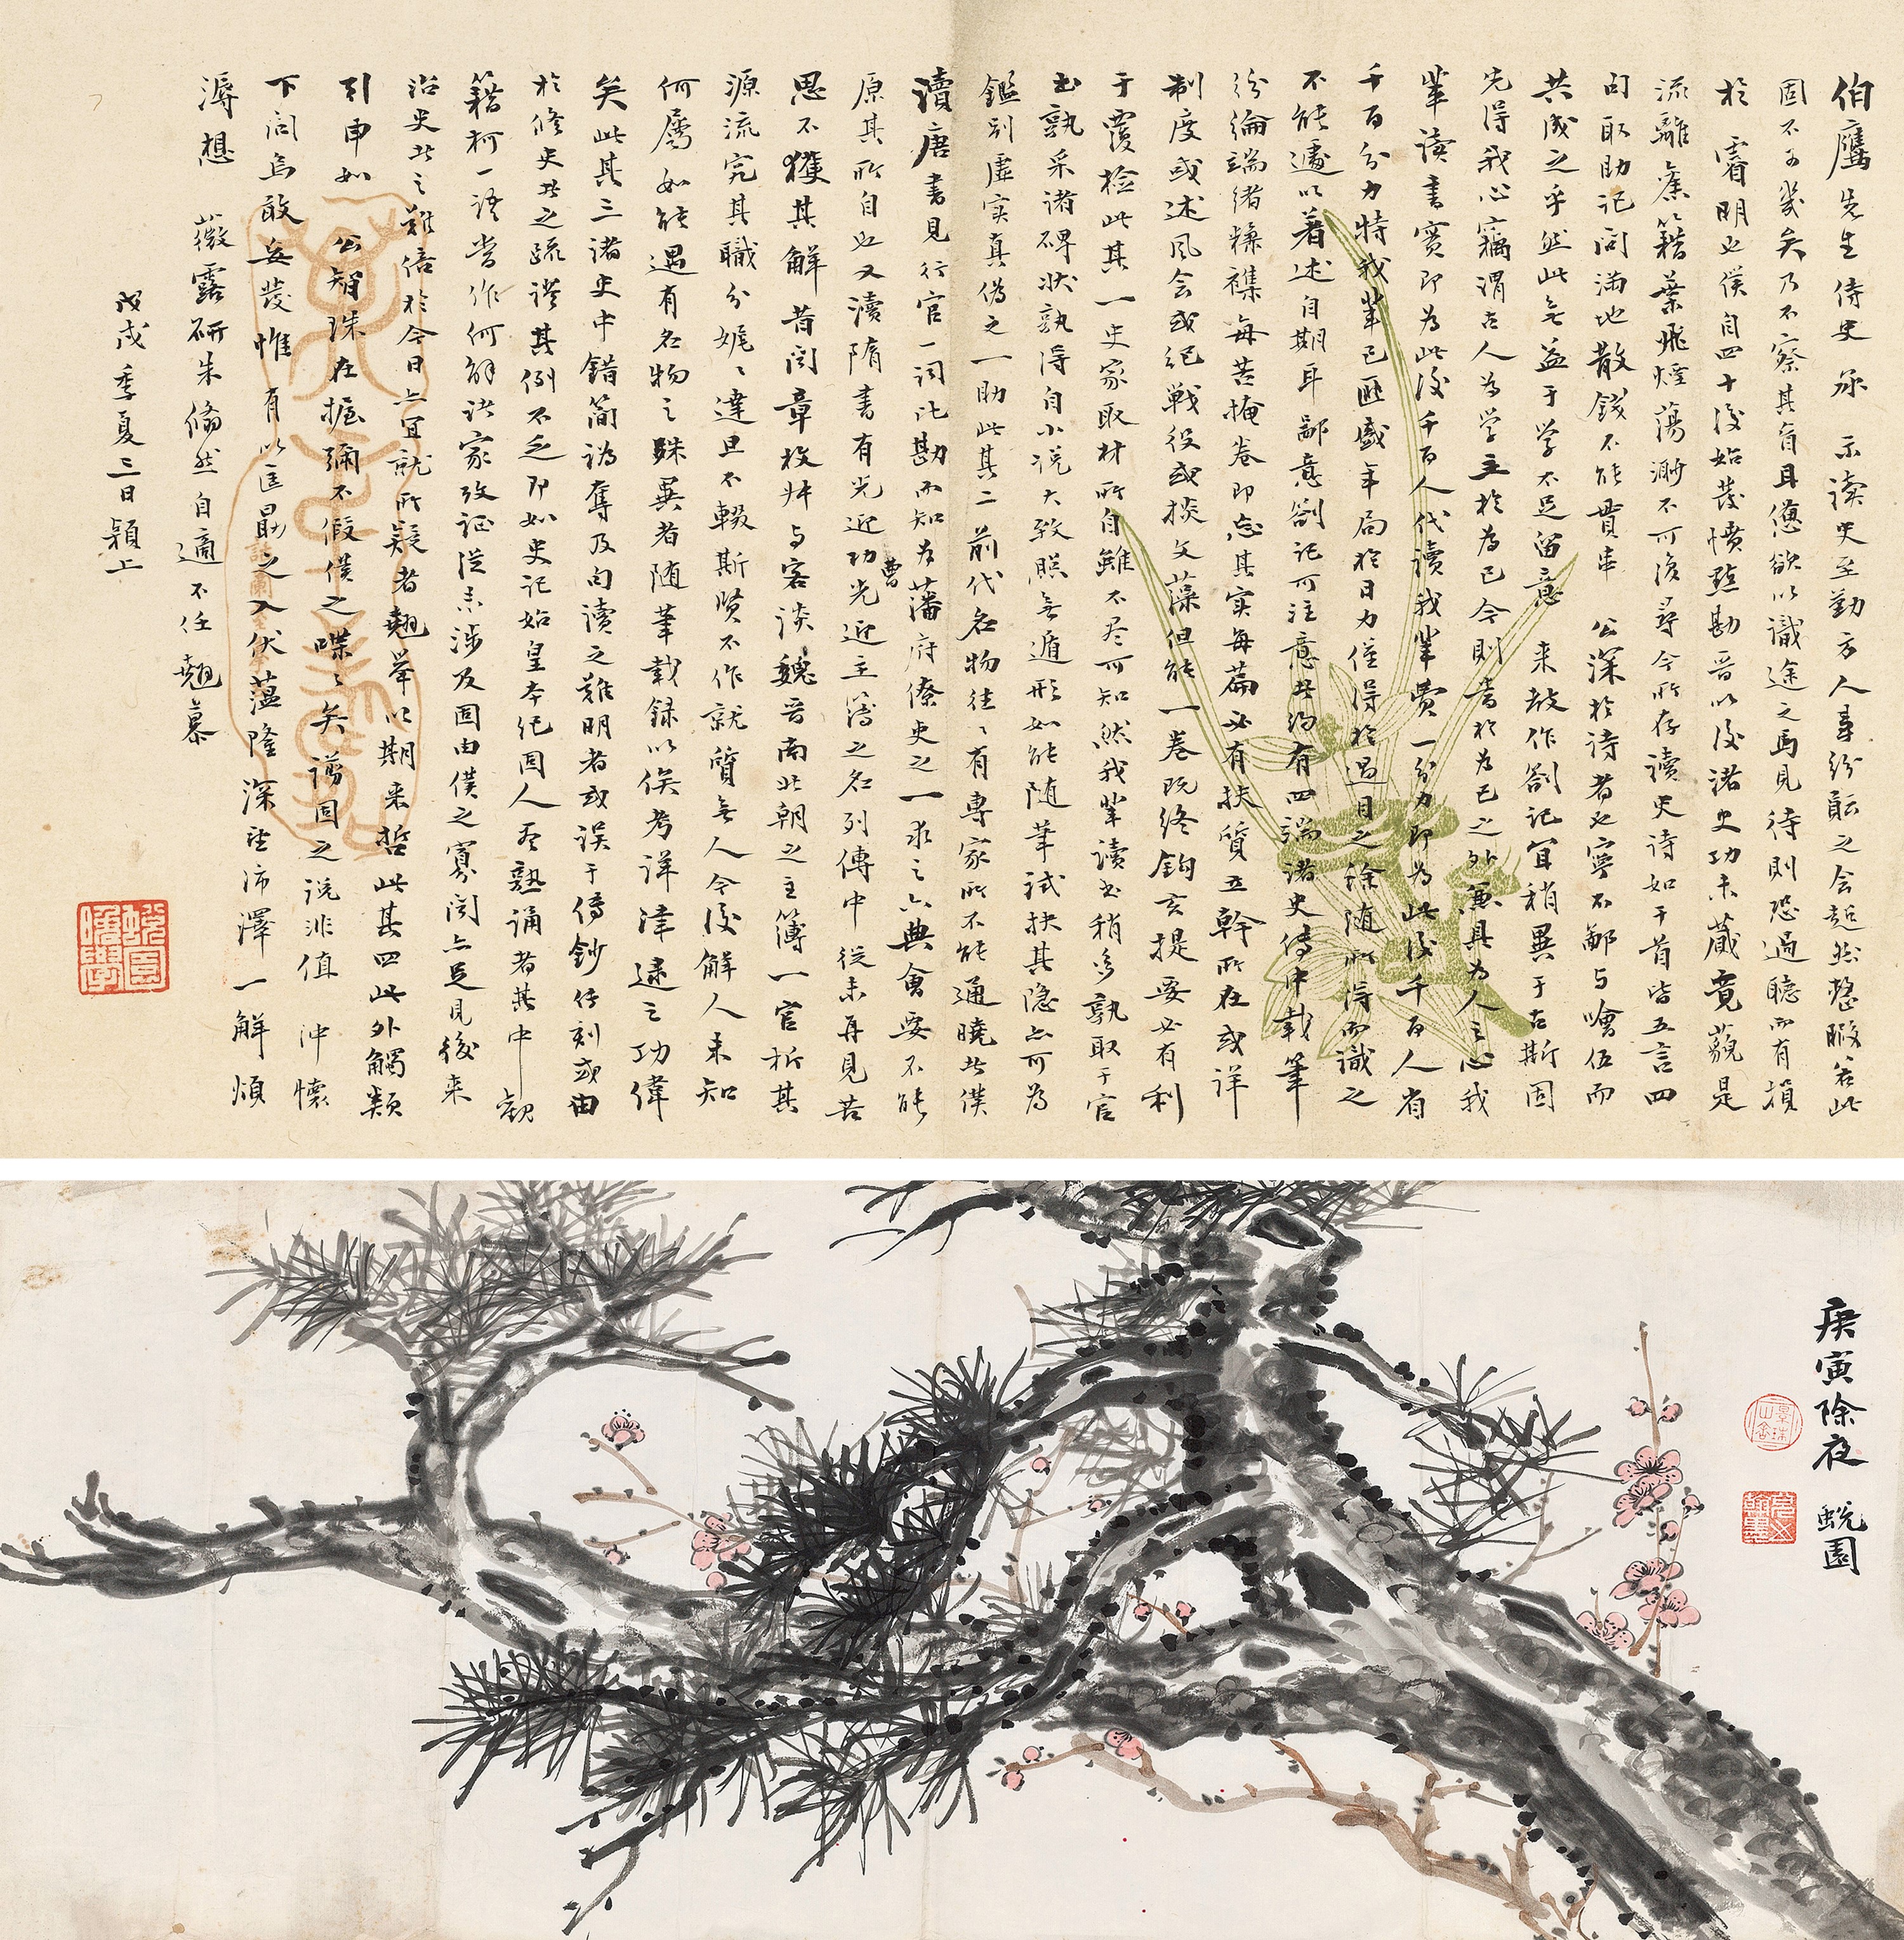 伯鷹先生侍史承 示讀史至勤方人事紛耘之會超然整暇若此
固不可幾矣乃不察其盲且憊欲以識途之馬見待則恐過聽而有損
於 睿明也僕自四十後始發憤點勘晉以後諸史功未蕆竟藐是
流離舊籍葉飛煙蕩渺不可復尋今所存讀史詩如干首皆五言四
句取助記問滿地散錢不能貫串 公深於詩者也寧不鄙与噲伍而
共成之乎然此無益于学不足留意 来教作劄記宜稍異于古斯固
先得我心竊謂古人為学主於為己今則當於為己之外兼具為人之心我
輩讀書實即為此後千百人代讀我輩費一分力即為此後千百人省
千百分力特我輩已匪盛年局於日力僅得於過目之餘随所得而識之
不能遽以著述自期耳鄙意劄記可注意者約有四端諸史傳中載筆
紛綸端緒糅襍每苦掩卷即忘其實每篇必有扶質立幹所在或詳
制度或述風会或紀戰役或掞文藻但能一卷既終鉤玄提要必有利
于覆检此其一史家取材所自雖不尽可知然我輩讀書稍多孰取于官
書孰采諸碑状孰得自小說大致照無遁形如能随筆試抉其隐亦可為
鑑别虛实真偽之一助此其二前代名物往往有專家所不能通曉者僕
讀唐書見行官一詞比勘而知為藩府僚吏之一求之六典會要不能
原其所自也又讀隋書有光迎功曹光迎主簿之名列傳中從未再見苦
思不獲其解昔聞章枚叔与客談魏晋南北朝之主簿一官析其
源流究其職分娓娓達旦不輟斯賢不作就質無人今後解人未知
何屬如能遇有名物之殊異者随筆載録以俟考詳津逮之功偉
矣此其三諸史中錯簡譌奪及句讀之難明者或误于傳鈔侍刻或由
於修史者之疏謬其例不乏即如史记始皇本纪固人盡熟誦者其中觀
籍柯一語當作何解諸家攷証從未涉及固由僕之寡聞亦足見後来
治史者之難倍於今日亦宜就所疑者翹舉以期来哲此其四此外觸類
引申如 公智珠在握彌不假僕之喋喋矣謭固之說非值 沖懷
下问烏敢妄發惟 有以匡勗之入伏薀隆深望沛澤一解煩
溽想 薇露研朱翛然自適不任翹慕
戊戌季夏三日穎上
蛻園晚學
庚寅除夜 蛻園
景珠山舍